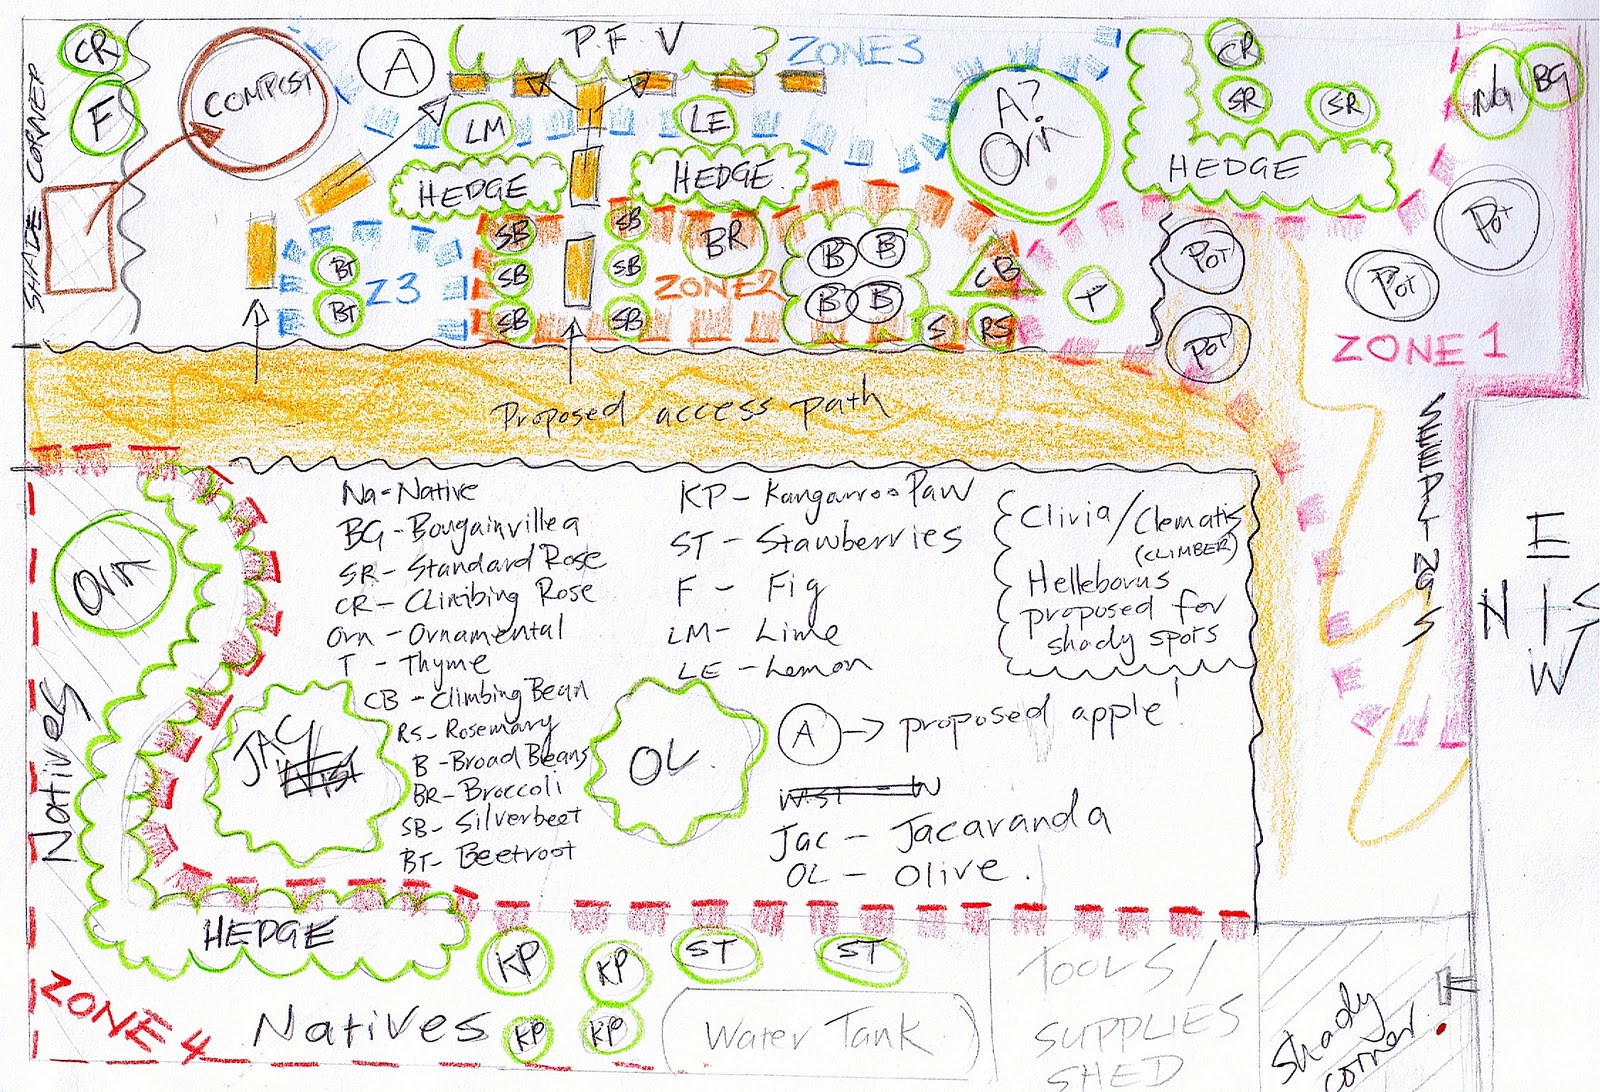 SHADE CORNER
CR
F
COMPOST
A
P.F.V
ZONE 3
LM
LE
HEDGE
HEDGE
A?
Orn
CR
SR
SR
HEDGE
NG
BG
Pot
Pot
Pot
Pot
ZONE 1
BT
BT
Z3
SB
SB
SB
SB
SB
SB
BR
ZONE2
B
B
B
B
CB
S
RS
T
Proposed access path
SEEPLTNGS
E
N
S
W
Orn
Natives
Na=Native
BG-Bougainvillea
SR-Standard Rose
CR-Climbing Rose
Orn-Ornamental
T-Thyme
CB-Climbing Bean
RS-Rosemary
B-Broad Beans
BR-Broccoli
SB-Silverbeet
BT-Beetroot
KP-Kangaroo Paw
ST-Stawberries
F-Fig
LM-Lime
LE-Lemon
Clivia/Clematis
(CLIMBER)
Helleborus
proposed for
shady spots
A -> proposed apple!
Wist - W
Jac-Jacaranda
OL-Olive.
JAC
Wist
OL.
HEDGE
ZONE 4
Natives
KP
KP
KP
KP
ST
ST
Water Tank
TOOLS/
SUPPLIES
SHED
Shady
corner.